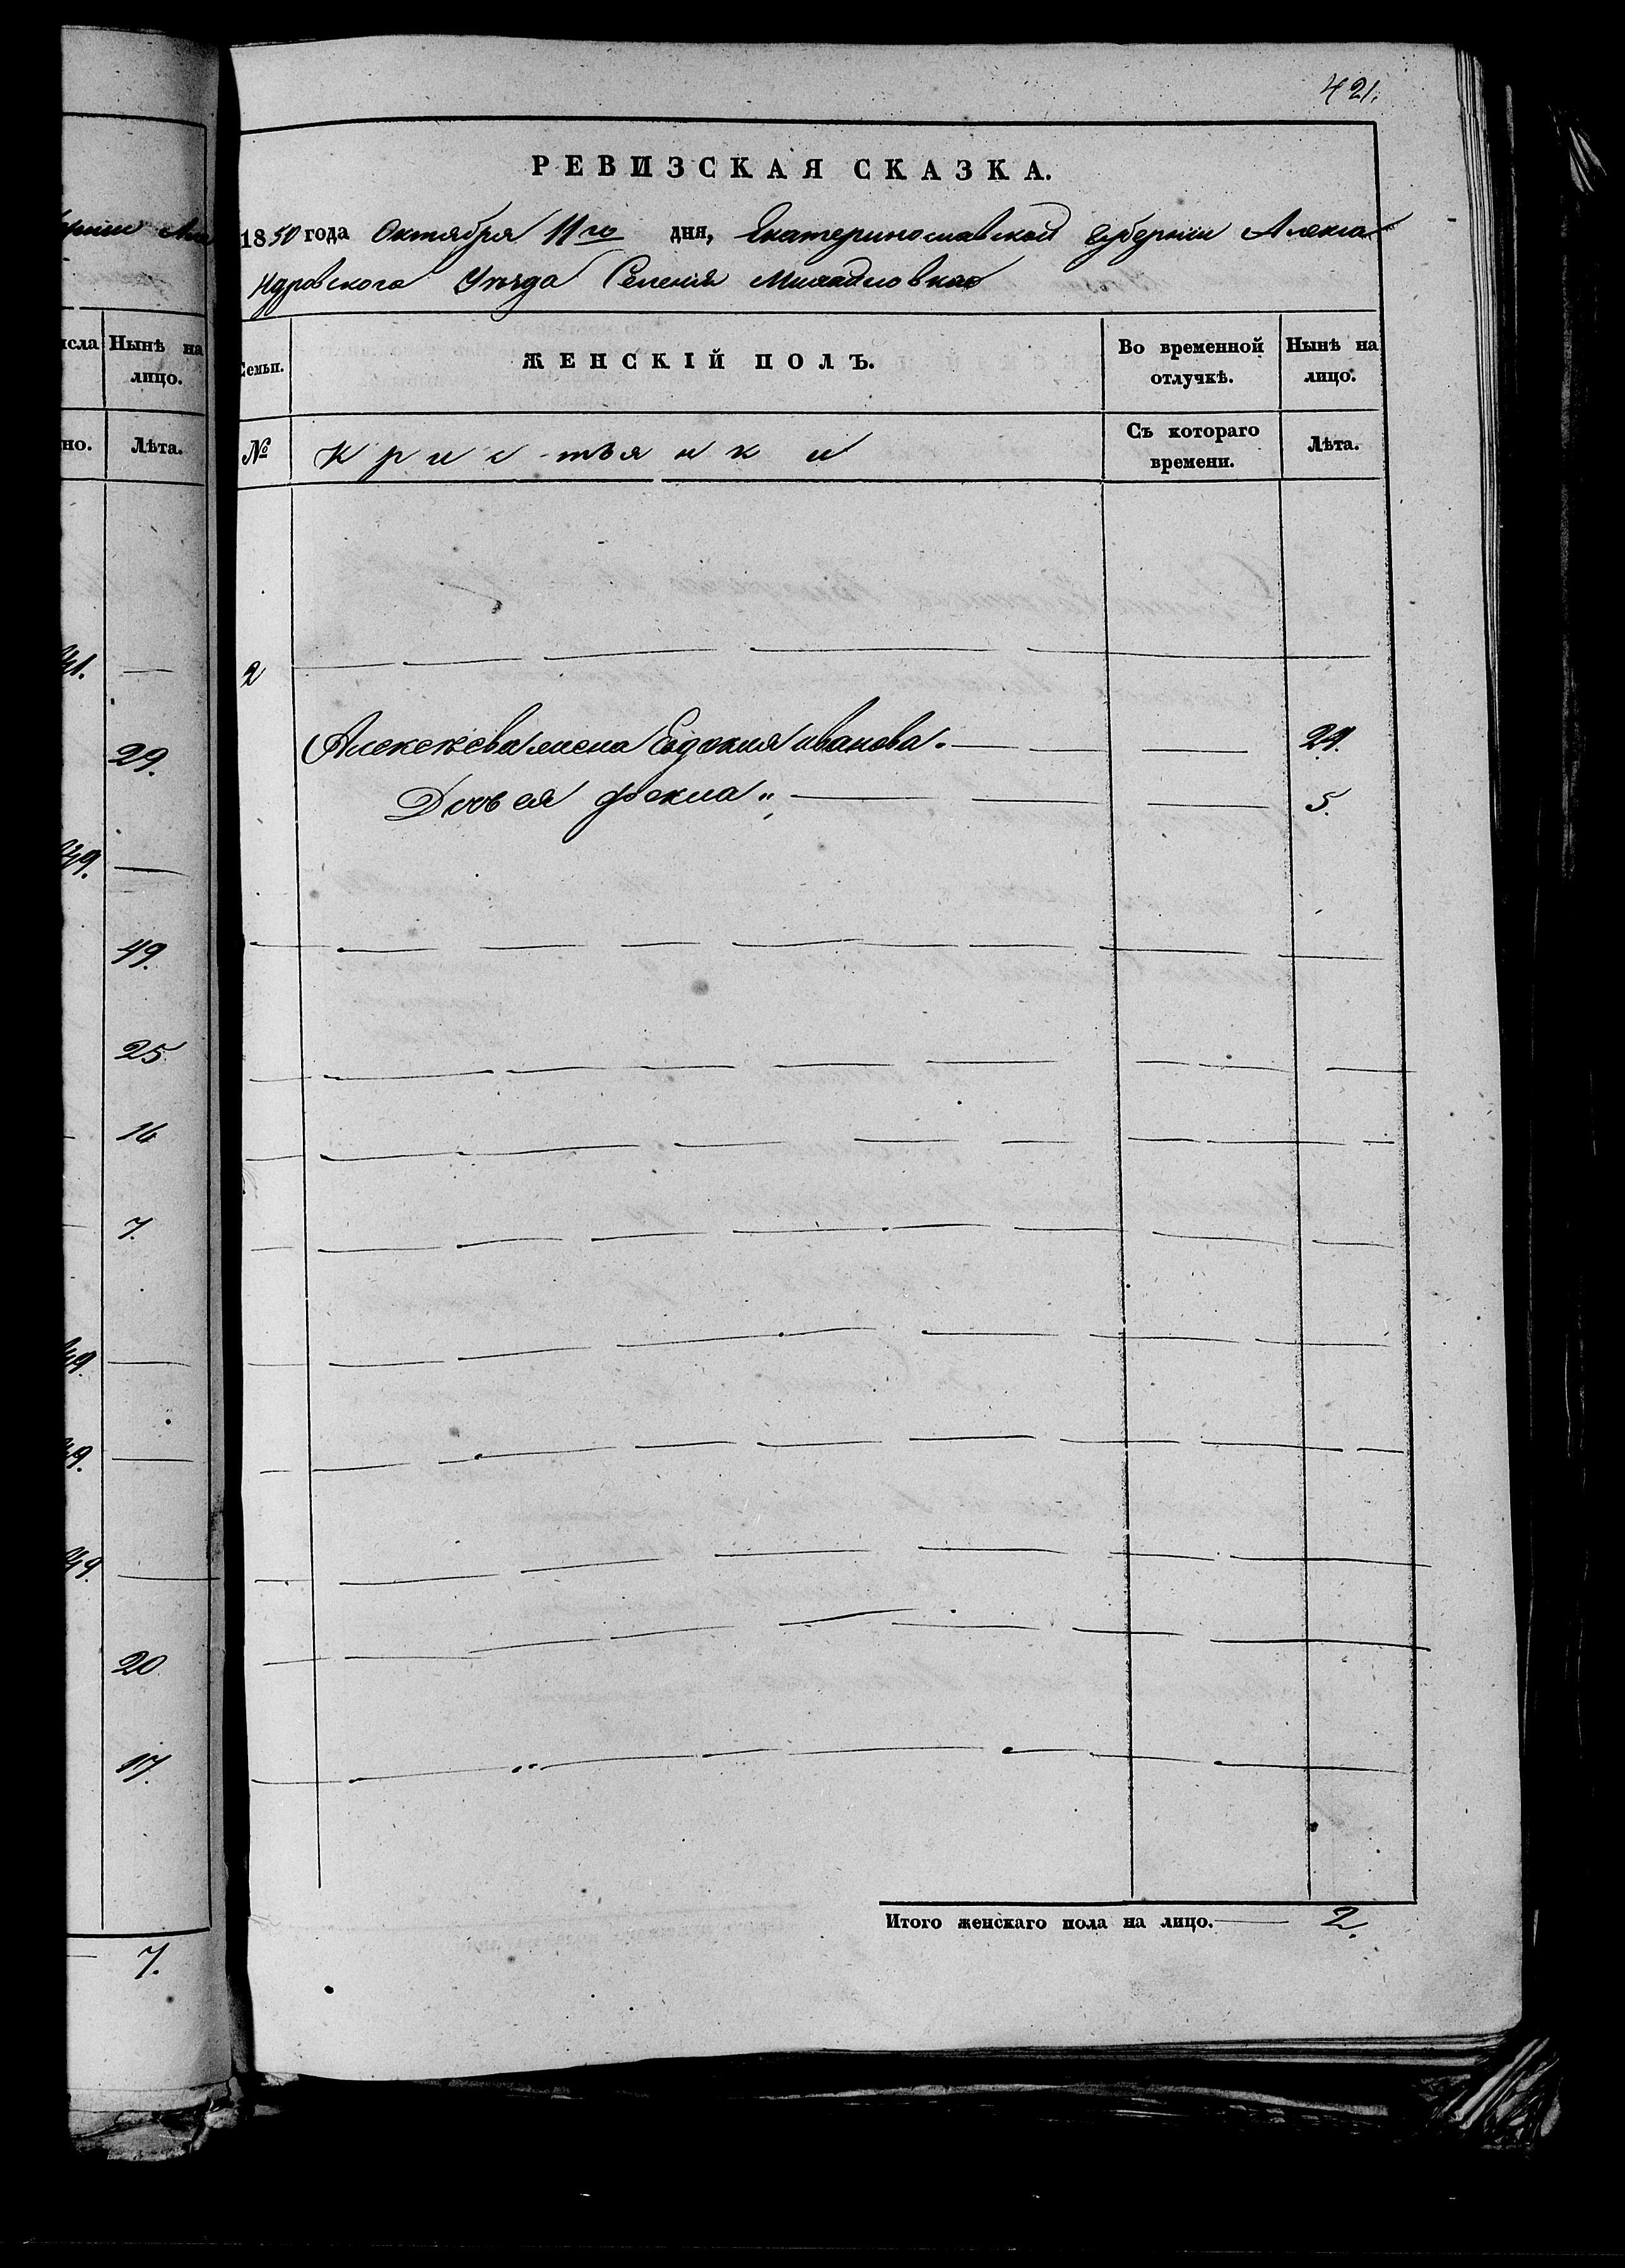 421.
РЕВИЗСКАЯ СКАЗКА.
1850 года Октября 11го дня, Екатеринославской Губернии Алекса
ндровского Уѣзда Селенія Михайловка
Семьи.
ЖЕНСКІЙ ПОЛЪ.
Во временной отлучкѣ.
Нынѣ на лицо.
№
Крис-тьянки
Съ котораго времени.
Лѣта.
2
Алексѣева жена Евдокия иванова. 21.
Дочь ея фекла 5.
Итого женскаго пола на лицо. 2.
Нынѣ на лицо.
но.
Лѣта.
41.
29.
49.
49.
25.
16
7.
49.
49.
49.
20
17.
7.